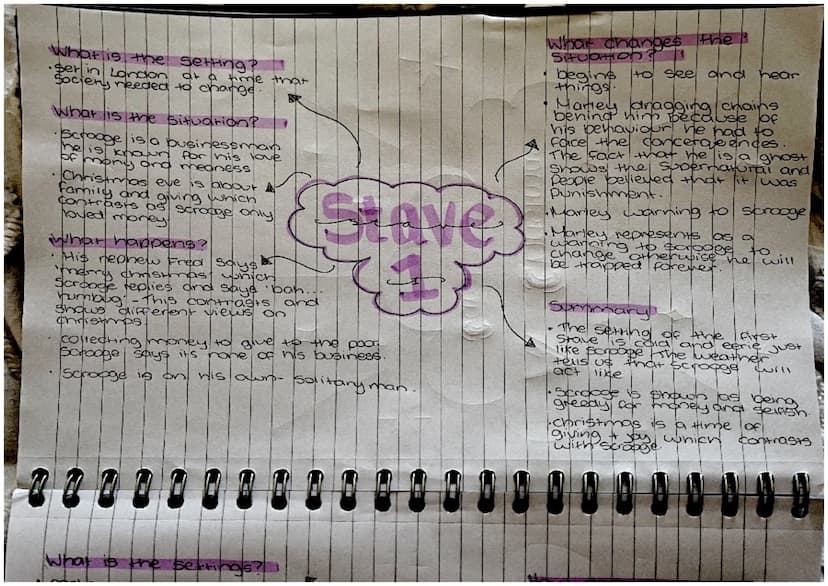 What is the setting?
• Set in London at a time that
society needed to change.
What is the situation?
• Scrooge is a businessman
he is known for his love
of mony and meaness
• Christmas eve is about
family and giving which
contrasts as scrooge only
loved money.
What happens?
• His nephew Fred says
'merry christmas' which
scrooge replies and says 'bah...
humbug' - This contrasts and
shows different views on
christmas.
• collecting money to give to the poor
scrooge says its none of his business.
• Scrooge is on his own - solitary man.
Stave
1
What changes the
situation?
• begins to see and hear
things.
• Marley dragging chains
behind him because of
his behaviour he had to
face the
The fact that he is a ghost
shows the supernatural and
people believed that it was
punishment.
• Marley warning to scrooge
• Marley represents as a
warning to scrooge to
change otherwise he will
be trapped forever.
Summary
• The setting of the first
stave is cold and eerie just
like scrooge. The weather
tells us that scrooge will
act like
• Scrooge is shown as being
greedy for money and selfish.
• christmas is a time of
giving + joy which contrasts
with scrooge
What is the settings?